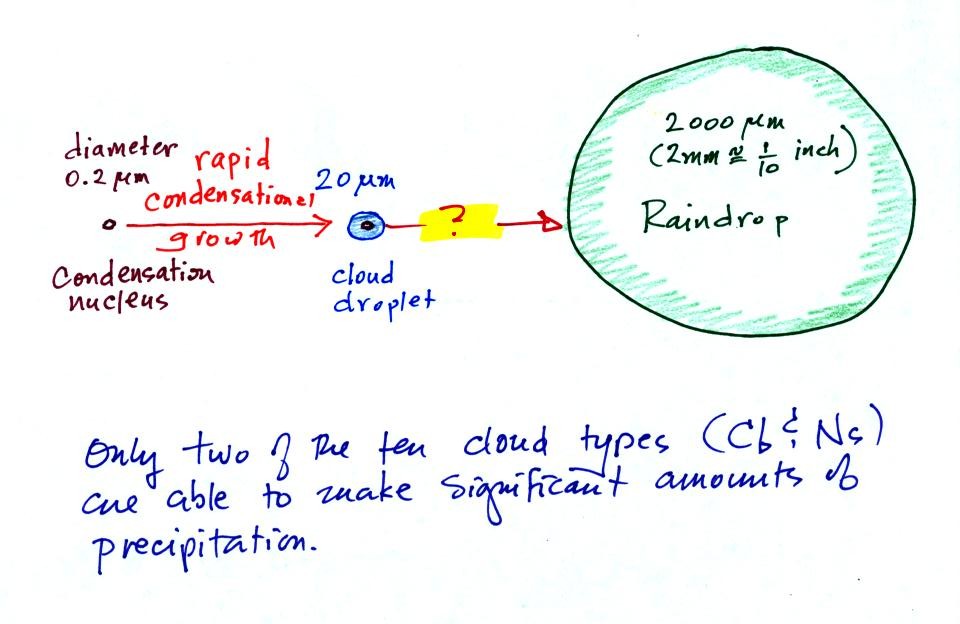 diameter
0.2 μm
rapid
condensational
growth
Condensation
nucleus
20 μm
cloud
droplet
?
2000 μm
(2mm ≅ 1/10 inch)
Raindrop
Only two of the ten cloud types (Cb & Ns)
are able to make significant amounts of
precipitation.